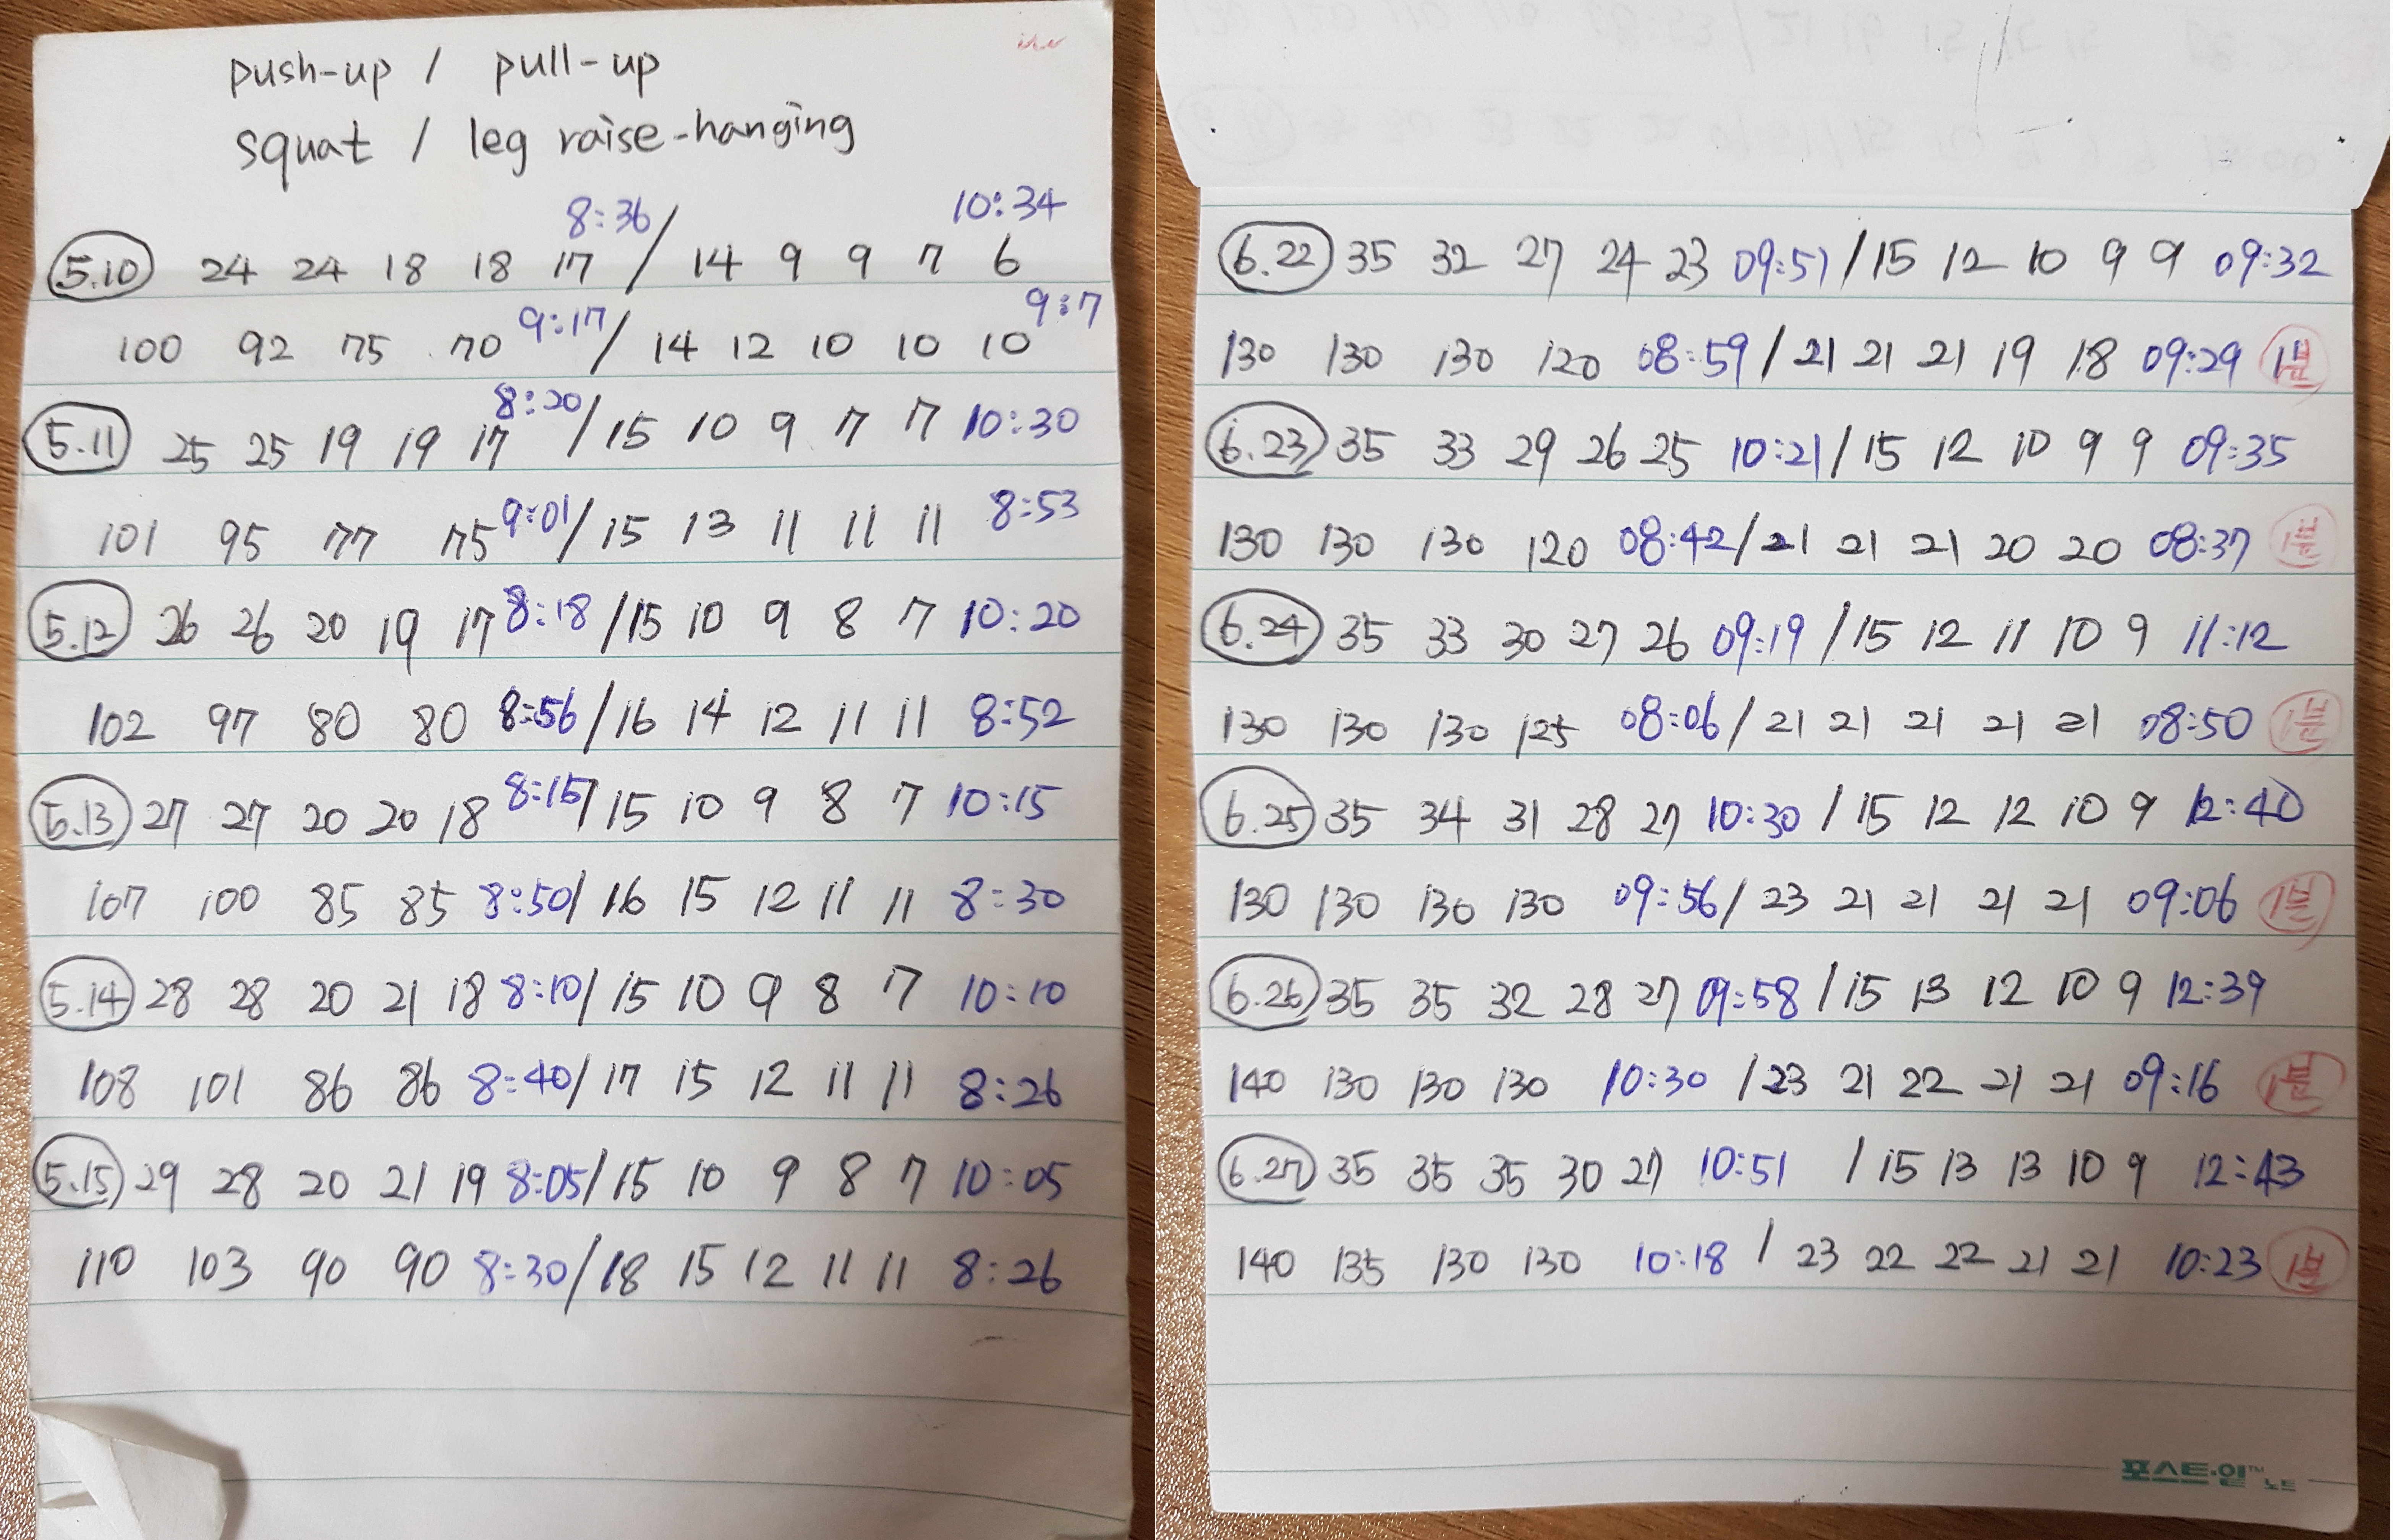 push-up / pull-up
squat / leg raise-hanging
8:36 10:34
5.10 24 24 18 18 17 / 14 9 9 7 6
100 92 75 70 9:17 / 14 12 10 10 10 9:7
5.11 25 25 19 19 17 8:20 / 15 10 9 7 7 10:30
101 95 77 75 9:01 / 15 13 11 11 11 8:53
5.12 26 26 20 19 17 8:18 / 15 10 9 8 7 10:20
102 97 80 80 8:56 / 16 14 12 11 11 8:52
5.13 27 27 20 20 18 8:15 / 15 10 9 8 7 10:15
107 100 85 85 8:50 / 16 15 12 11 11 8:30
5.14 28 28 20 21 18 8:10 / 15 10 9 8 7 10:10
108 101 86 86 8:40 / 17 15 12 11 11 8:26
5.15 29 28 20 21 19 8:05 / 15 10 9 8 7 10:05
110 103 90 90 8:30 / 18 15 12 11 11 8:26
6.22 35 32 27 24 23 09:51 / 15 12 10 9 9 09:32
130 130 130 120 08:59 / 21 21 21 19 18 09:29
6.23 35 33 29 26 25 10:21 / 15 12 10 9 9 09:35
130 130 130 120 08:42 / 21 21 21 20 20 08:37
6.24 35 33 30 27 26 09:19 / 15 12 11 10 9 11:12
130 130 130 125 08:06 / 21 21 21 21 21 08:50
6.25 35 34 31 28 27 10:30 / 15 12 12 10 9 12:40
130 130 130 130 09:56 / 23 21 21 21 21 09:06
6.26 35 35 32 28 27 09:58 / 15 13 12 10 9 12:39
140 130 130 130 10:30 / 23 21 22 21 21 09:16
6.27 35 35 35 30 27 10:51 / 15 13 13 10 9 12:43
140 135 130 130 10:18 / 23 22 22 21 21 10:23
포스트·잍™ 노트